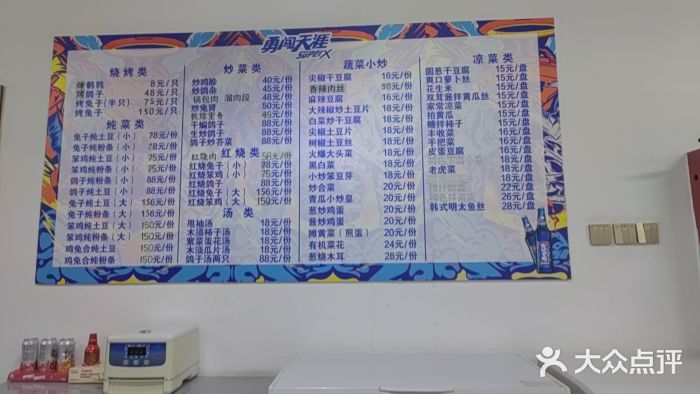 勇闯天涯
SUPERX
烧烤类
烤鹌鹑 8元/只
烤鸽子 48元/只
烤兔子(半只) 75元/只
烤兔子 150元/只
炖菜类
兔子炖土豆(小) 78元/份
兔子炖粉条(小) 78元/份
笨鸡炖土豆(小) 75元/份
笨鸡炖粉条(小) 75元/份
鸽子炖粉条(小) 88元/份
鸽子炖土豆(小) 88元/份
兔子炖土豆(大) 156元/份
兔子炖粉条(大) 156元/份
笨鸡炖土豆(大) 150元/份
笨鸡炖粉条(大) 150元/份
鸡兔合炖土豆 150元/份
鸡兔合炖粉条 150元/份
炒菜类
炒鸡胗 40元/份
炒鸽杂 45元/份
锅包肉 溜肉段
炒兔肾 50元/份
45元/份
干煸鸽子 88元/份
生炒鸽子 88元/份
鸽子炒芥菜 88元/份
红烧类
红烧肉
红烧兔子(小) 88元/份
红烧笨鸡(小) 75元/份
红烧鸽子 88元/份
红烧兔子(大) 156元/份
红烧笨鸡(大) 150元/份
汤类
甩袖汤 18元/份
木须柿子汤 18元/份
紫菜蛋花汤 18元/份
木须瓜片汤 18元/份
鸽子汤两只 88元/份
蔬菜小炒
尖椒干豆腐 16元/份
香辣肉丝
麻辣豆腐 16元/份
大辣椒炒土豆片 16元/份
白菜炒干豆腐 16元/份
尖椒土豆片 18元/份
树椒土豆丝 18元/份
火爆大头菜 18元/份
黑白菜 18元/份
小炒笨豆芽 18元/份
炒合菜 20元/份
青瓜小炒皇 20元/份
葱炒鸡蛋 20元/份
酱炒鸡蛋 20元/份
摊黄菜(煎蛋) 20元/份
有机菜花 24元/份
葱烧木耳 28元/份
凉菜类
圆葱干豆腐 15元/盘
爽口萝卜丝 15元/盘
花生米 15元/盘
双茸酱拌黄瓜丝 15元/盘
家常凉菜 15元/盘
拍黄瓜 15元/盘
糖拌柿子 15元/盘
丰收菜 18元/盘
手把菜 18元/盘
皮蛋豆腐 18元/盘
老虎菜 18元/盘
18元/盘
22元/盘
26元/盘
韩式明太鱼丝 28元/盘
大众点评